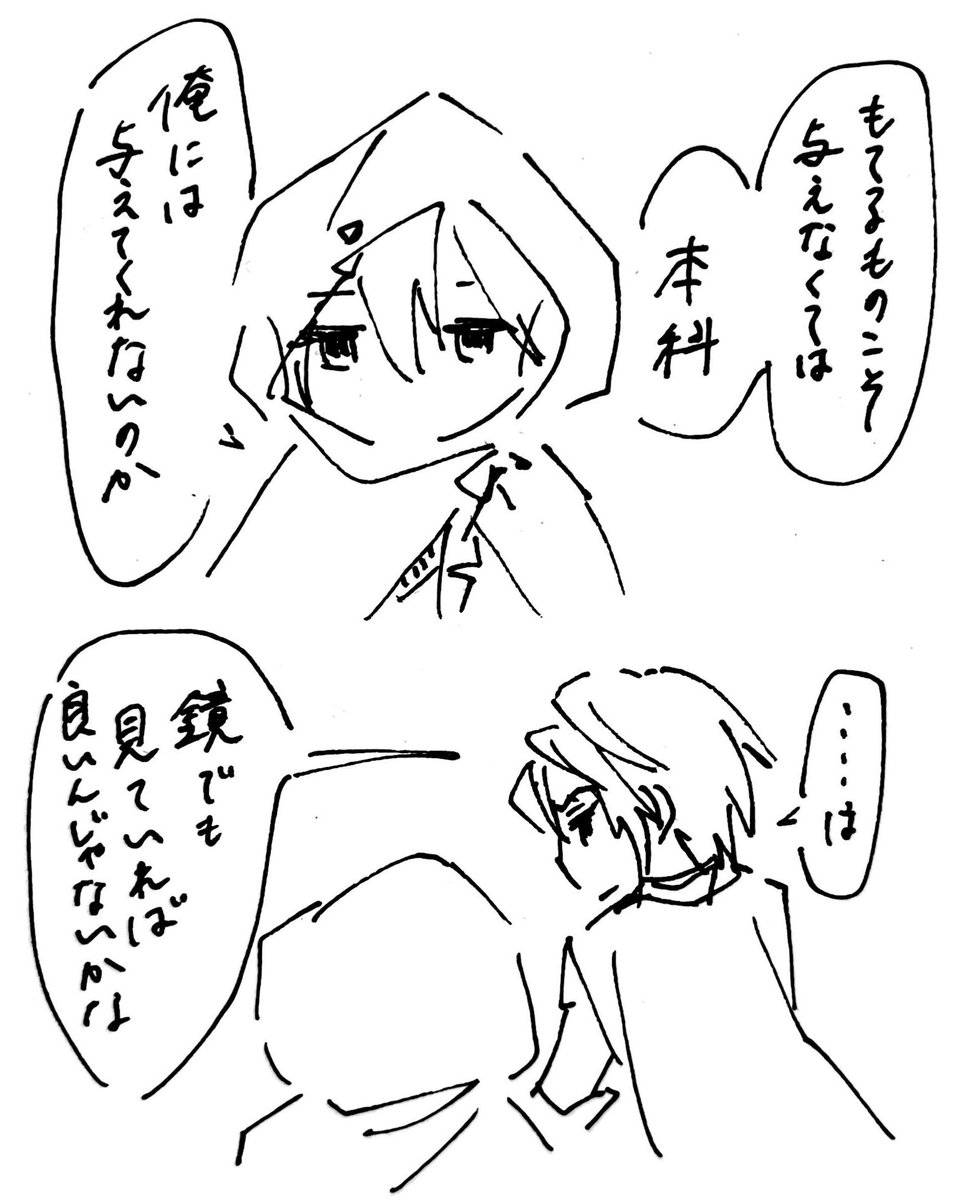 もてるものこそ
与えなくては
本科
俺には
与えてくれないのか
……は
鏡でも
見ていれば
良いんじゃないかな